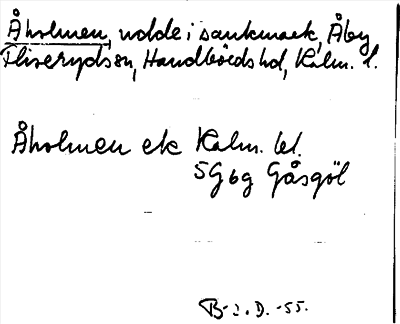 Åholmen, udde i sankmark, Åby
Fliseryds sn, Handbörds hd, Kalm. l.
Åholmen ek Kalm. bl.
5G6g Gåsgöl
B-2.D.-55.